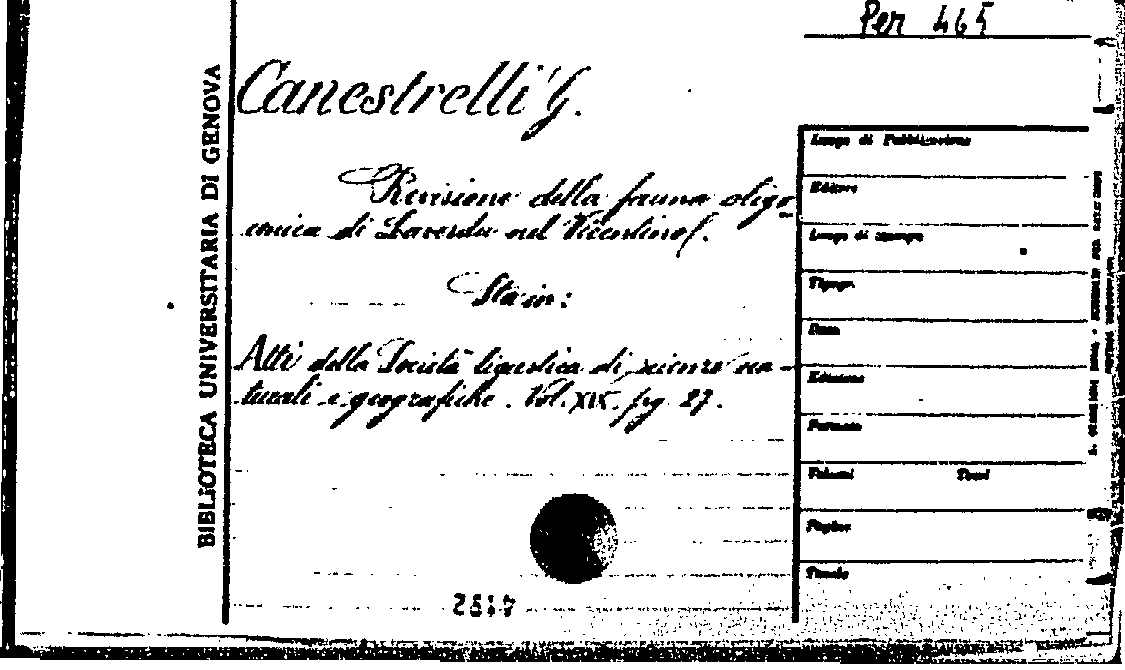 Per 465
BIBLIOTECA UNIVERSITARIA DI GENOVA
Canestrelli G.
Revisione della fauna oligo-
cenica di Laverda nel Vicentino.
Sta in:
Atti della Società ligustica di scienze na-
turali e geografiche. Vol. XIX, pg. 27.
Luogo di Pubblicazione
Editore
Luogo di stampa
Tipogr.
Data
Edizione
Formato
Volumi Tomi
Pagine
Tavole